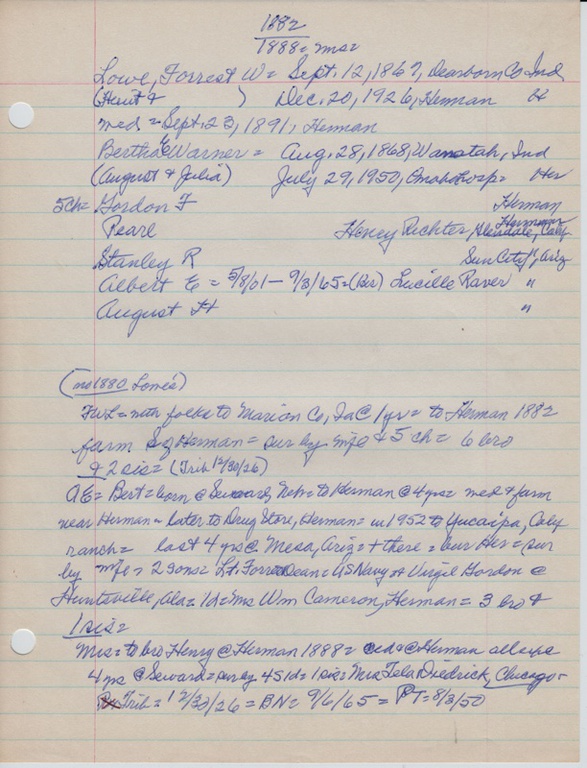 1882
1888 = Mrs =
Lowe, Forrest W = Sept. 12, 1867, Dearborn Co Ind
(Hent & ) Dec. 20, 1926, Herman H
med = Sept. 23, 1891, Herman
Bertha E Warner = Aug. 28, 1868, Wanatah, Ind
(August & Julia) July 29, 1950, Omaha Hosp = Her
5 ch = Gordon F Herman
Pearl Henry Richter, Glendale, Calif
Stanley R Sun City, Ariz
Albert E = 5/8/01 - 9/3/65 = (Ber) Lucille Raver "
August H "
(no 1880 Lowes)
FWL = with folks to Marion Co, Ia @ 1 yr = to Herman 1882
farm Herman = sur by wife & 5 ch = 6 bro
& 2 sis = (Trib 12/30/26)
AE = Bert = born @ Seward, Neb = to Herman @ 4 yrs = med & farm
near Herman - later to Drug Store, Herman = in 1952 to Yucaipa, Calif
ranch = last 4 yrs @ Mesa, Ariz = + there = bur Her = sur
by wife = 2 sons = Lt. Forrest Dean = US Navy & Virgil Gordon @
Huntsville, Ala = 1 d = Mrs Wm Cameron, Herman = 3 bro &
1 sis =
Mrs = to bro Henry @ Herman 1888 = @ Herman all exc
4 yrs @ Seward = sur by 4 s 1 d = 1 sis = Mrs Lela Diedrick, Chicago -
Trib = 12/30/26 = BN = 9/6/65 = PT = 8/3/50